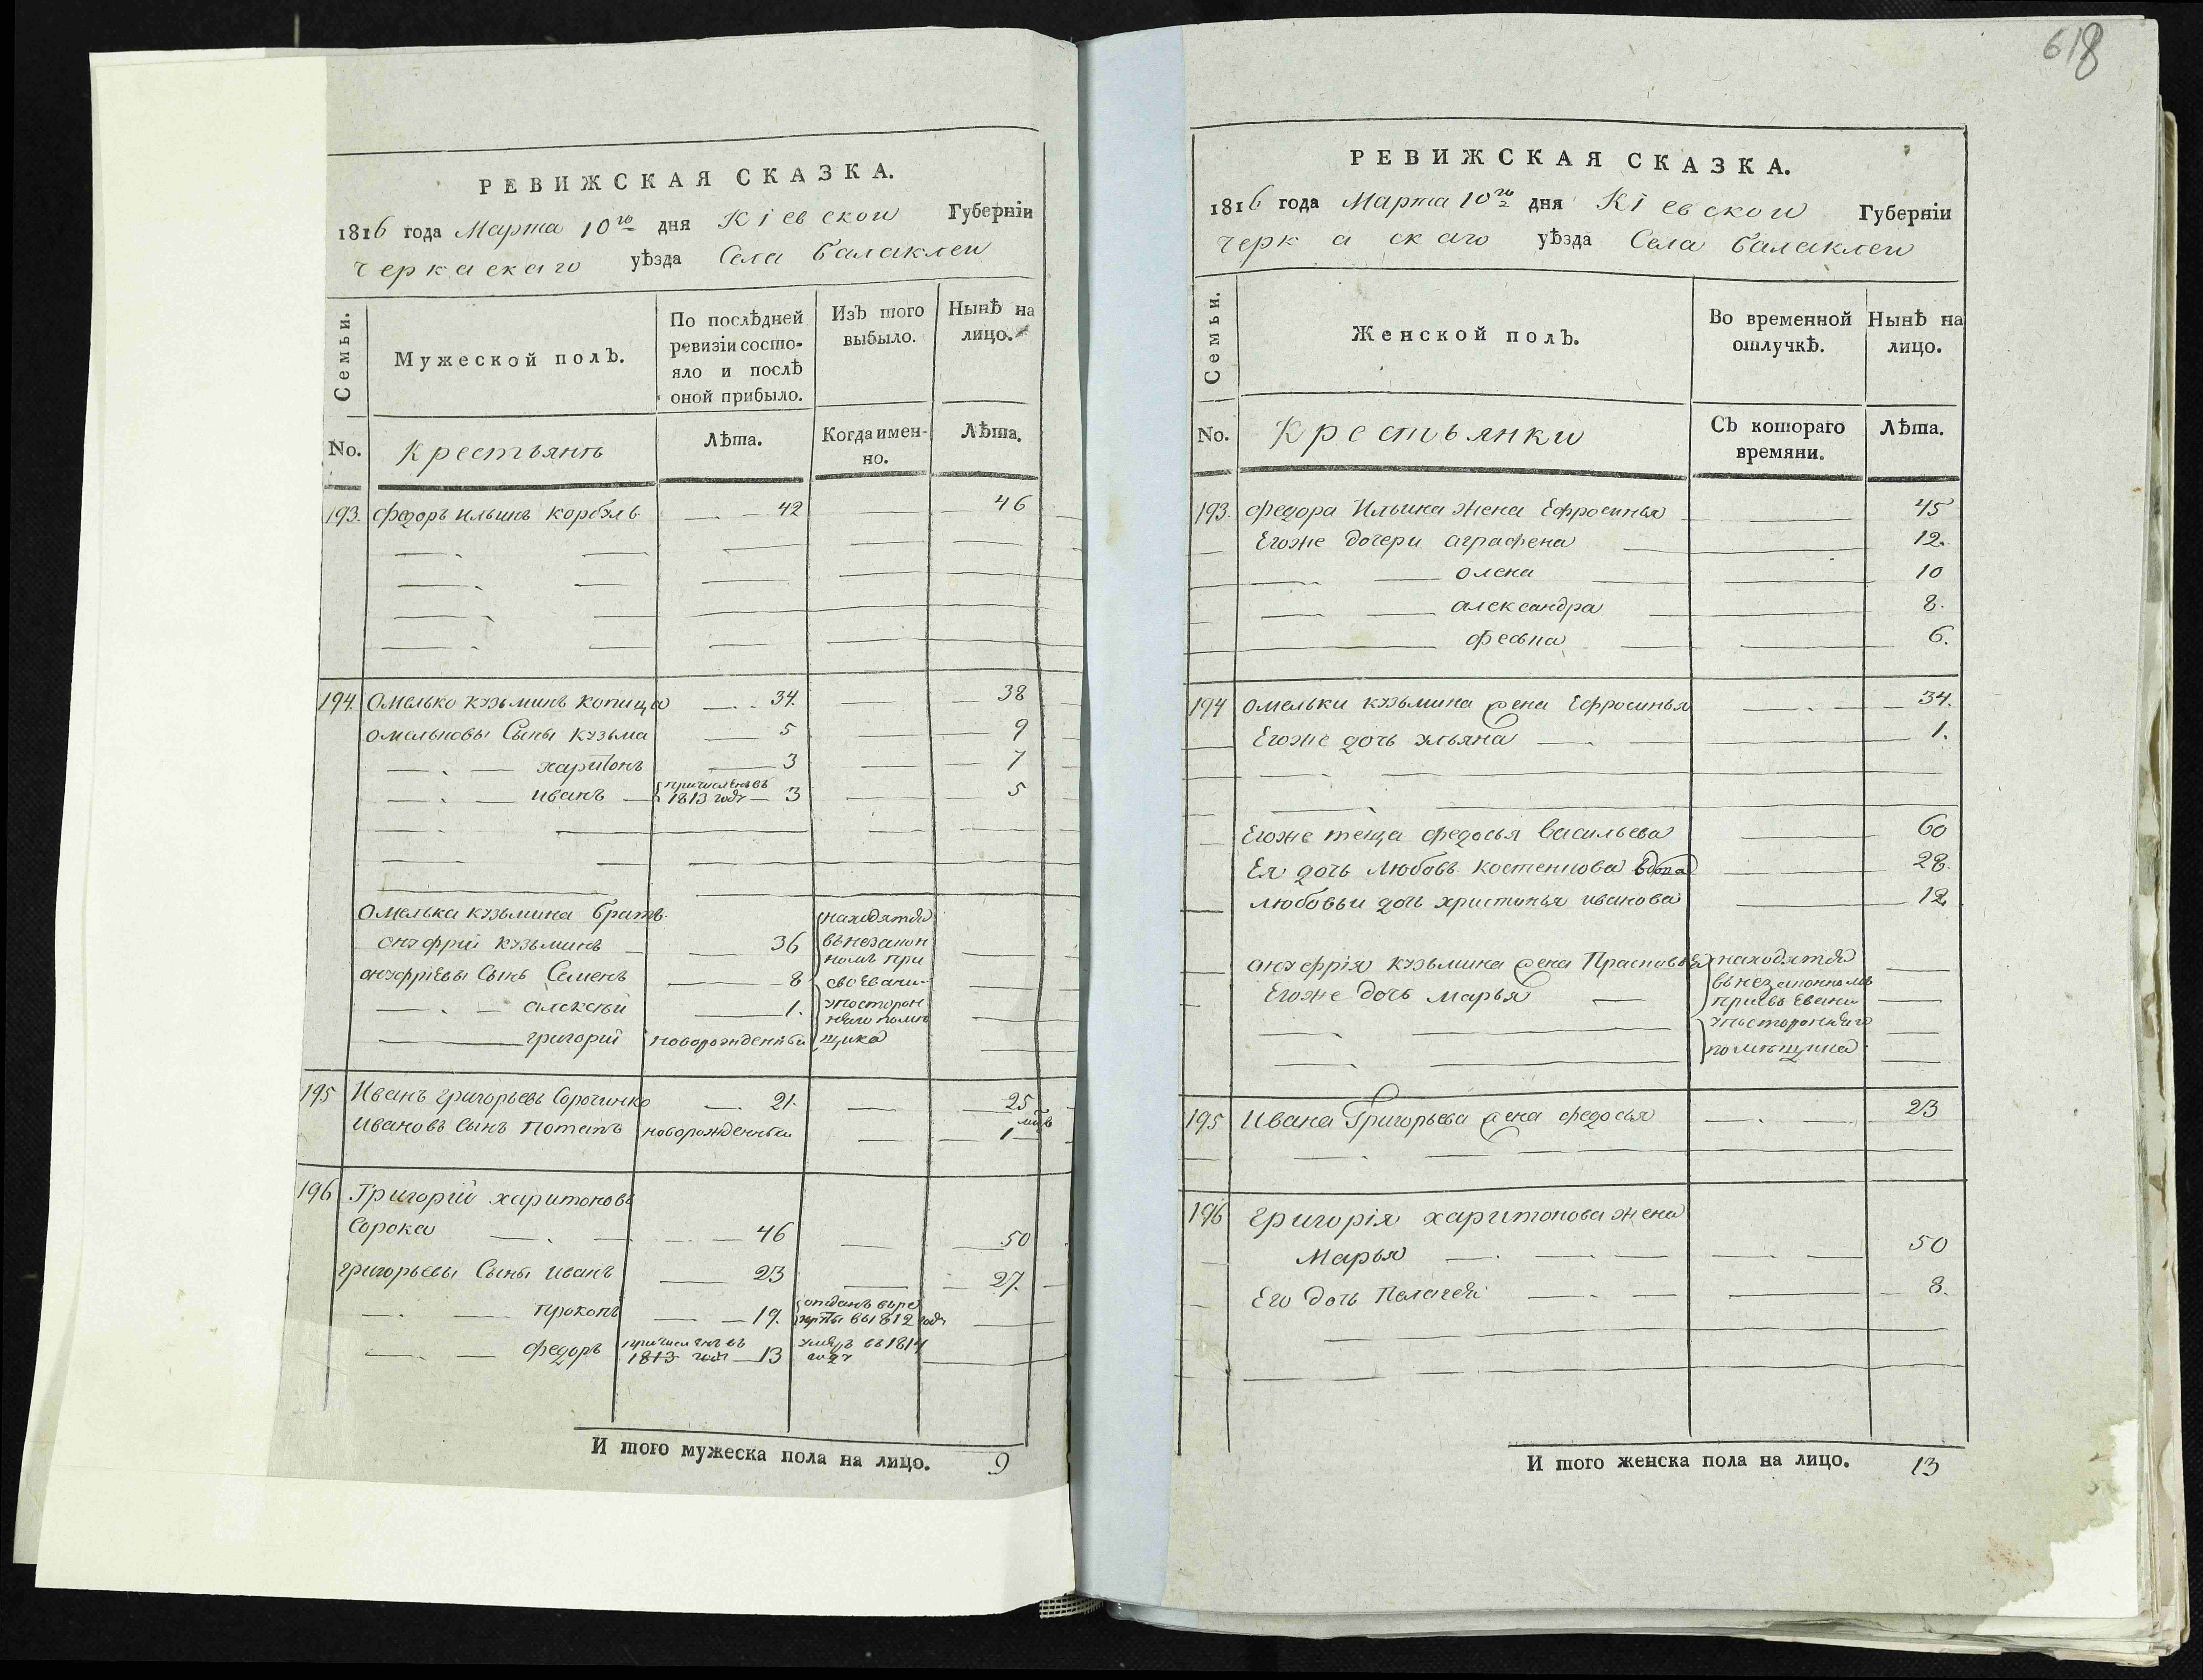 618
РЕВИЖСКАЯ СКАЗКА.
1816 года Марта 10го дня Кіевской Губерніи
Черкаскаго уѣзда Села Балаклеи
Семьи.
Мужеской полъ.
По послѣдней
ревизіи состо-
яло и послѣ
оной прибыло.
Изъ того
выбыло.
Нынѣ на
лицо.
No.
Крестьянъ
Лѣта.
Когда имен-
но.
Лѣта.
193. Федоръ Ильинъ 42 46
194. Омелько Кузьминъ Копица 34. 38
Омельковы Сыны Кузьма 5 9
Харитонъ 3 7
Иванъ причисленъ въ 1813 году 3 5
Омелька Кузьмина братъ
Онуфрій Кузьминъ 36
Онуфріевы Сынъ Семенъ 8
Алексѣй 1.
Григорій новорожденный
находятся
въ незакон
номъ при
своевани
у посторон
няго помѣ
щика
195 Иванъ Григорьевъ Сорочинко 21. 25
Ивановъ Сынъ Потапъ новорожденный 1
196 Григорій Харитоновъ
Сорока 46 50
Григорьевы Сыны Иванъ 23 27.
Прокопъ 19. отданъ въ ре
круты въ 1812 году
Федоръ причисленъ въ 1813 году 13 умеръ въ 1814
году
И того мужеска пола на лицо. 9
РЕВИЖСКАЯ СКАЗКА.
1816 года Марта 10го дня Кіевской Губерніи
Черкаскаго уѣзда Села Балаклеи
Семьи.
Женской полъ.
Во временной
отлучкѣ.
Нынѣ на
лицо.
No.
Крестьянки
Съ котораго
времяни.
Лѣта.
193. Федора Ильина жена Ефросинья 45
Егоже дочери Аграфена 12.
Олена 10
Александра 8.
6.
194 Омельки Кузьмина жена Ефросинья 34.
Егоже дочь Ульяна 1.
Егоже теща Федосья Васильева 60
Ея дочь Любовь Костенкова вдова 28.
Любовьи дочь Христинья Иванова 12
Онуфрія Кузьмина жена Прасковья
Егоже дочь Марья
находятся
въ незаконномъ
присвоевани
у посторонняго
помѣщика
195 Ивана Григорьева жена Федосья 23
196 Григорія Харитонова жена
Марья 50
Его дочь Пелагея 8.
И того женска пола на лицо. 13